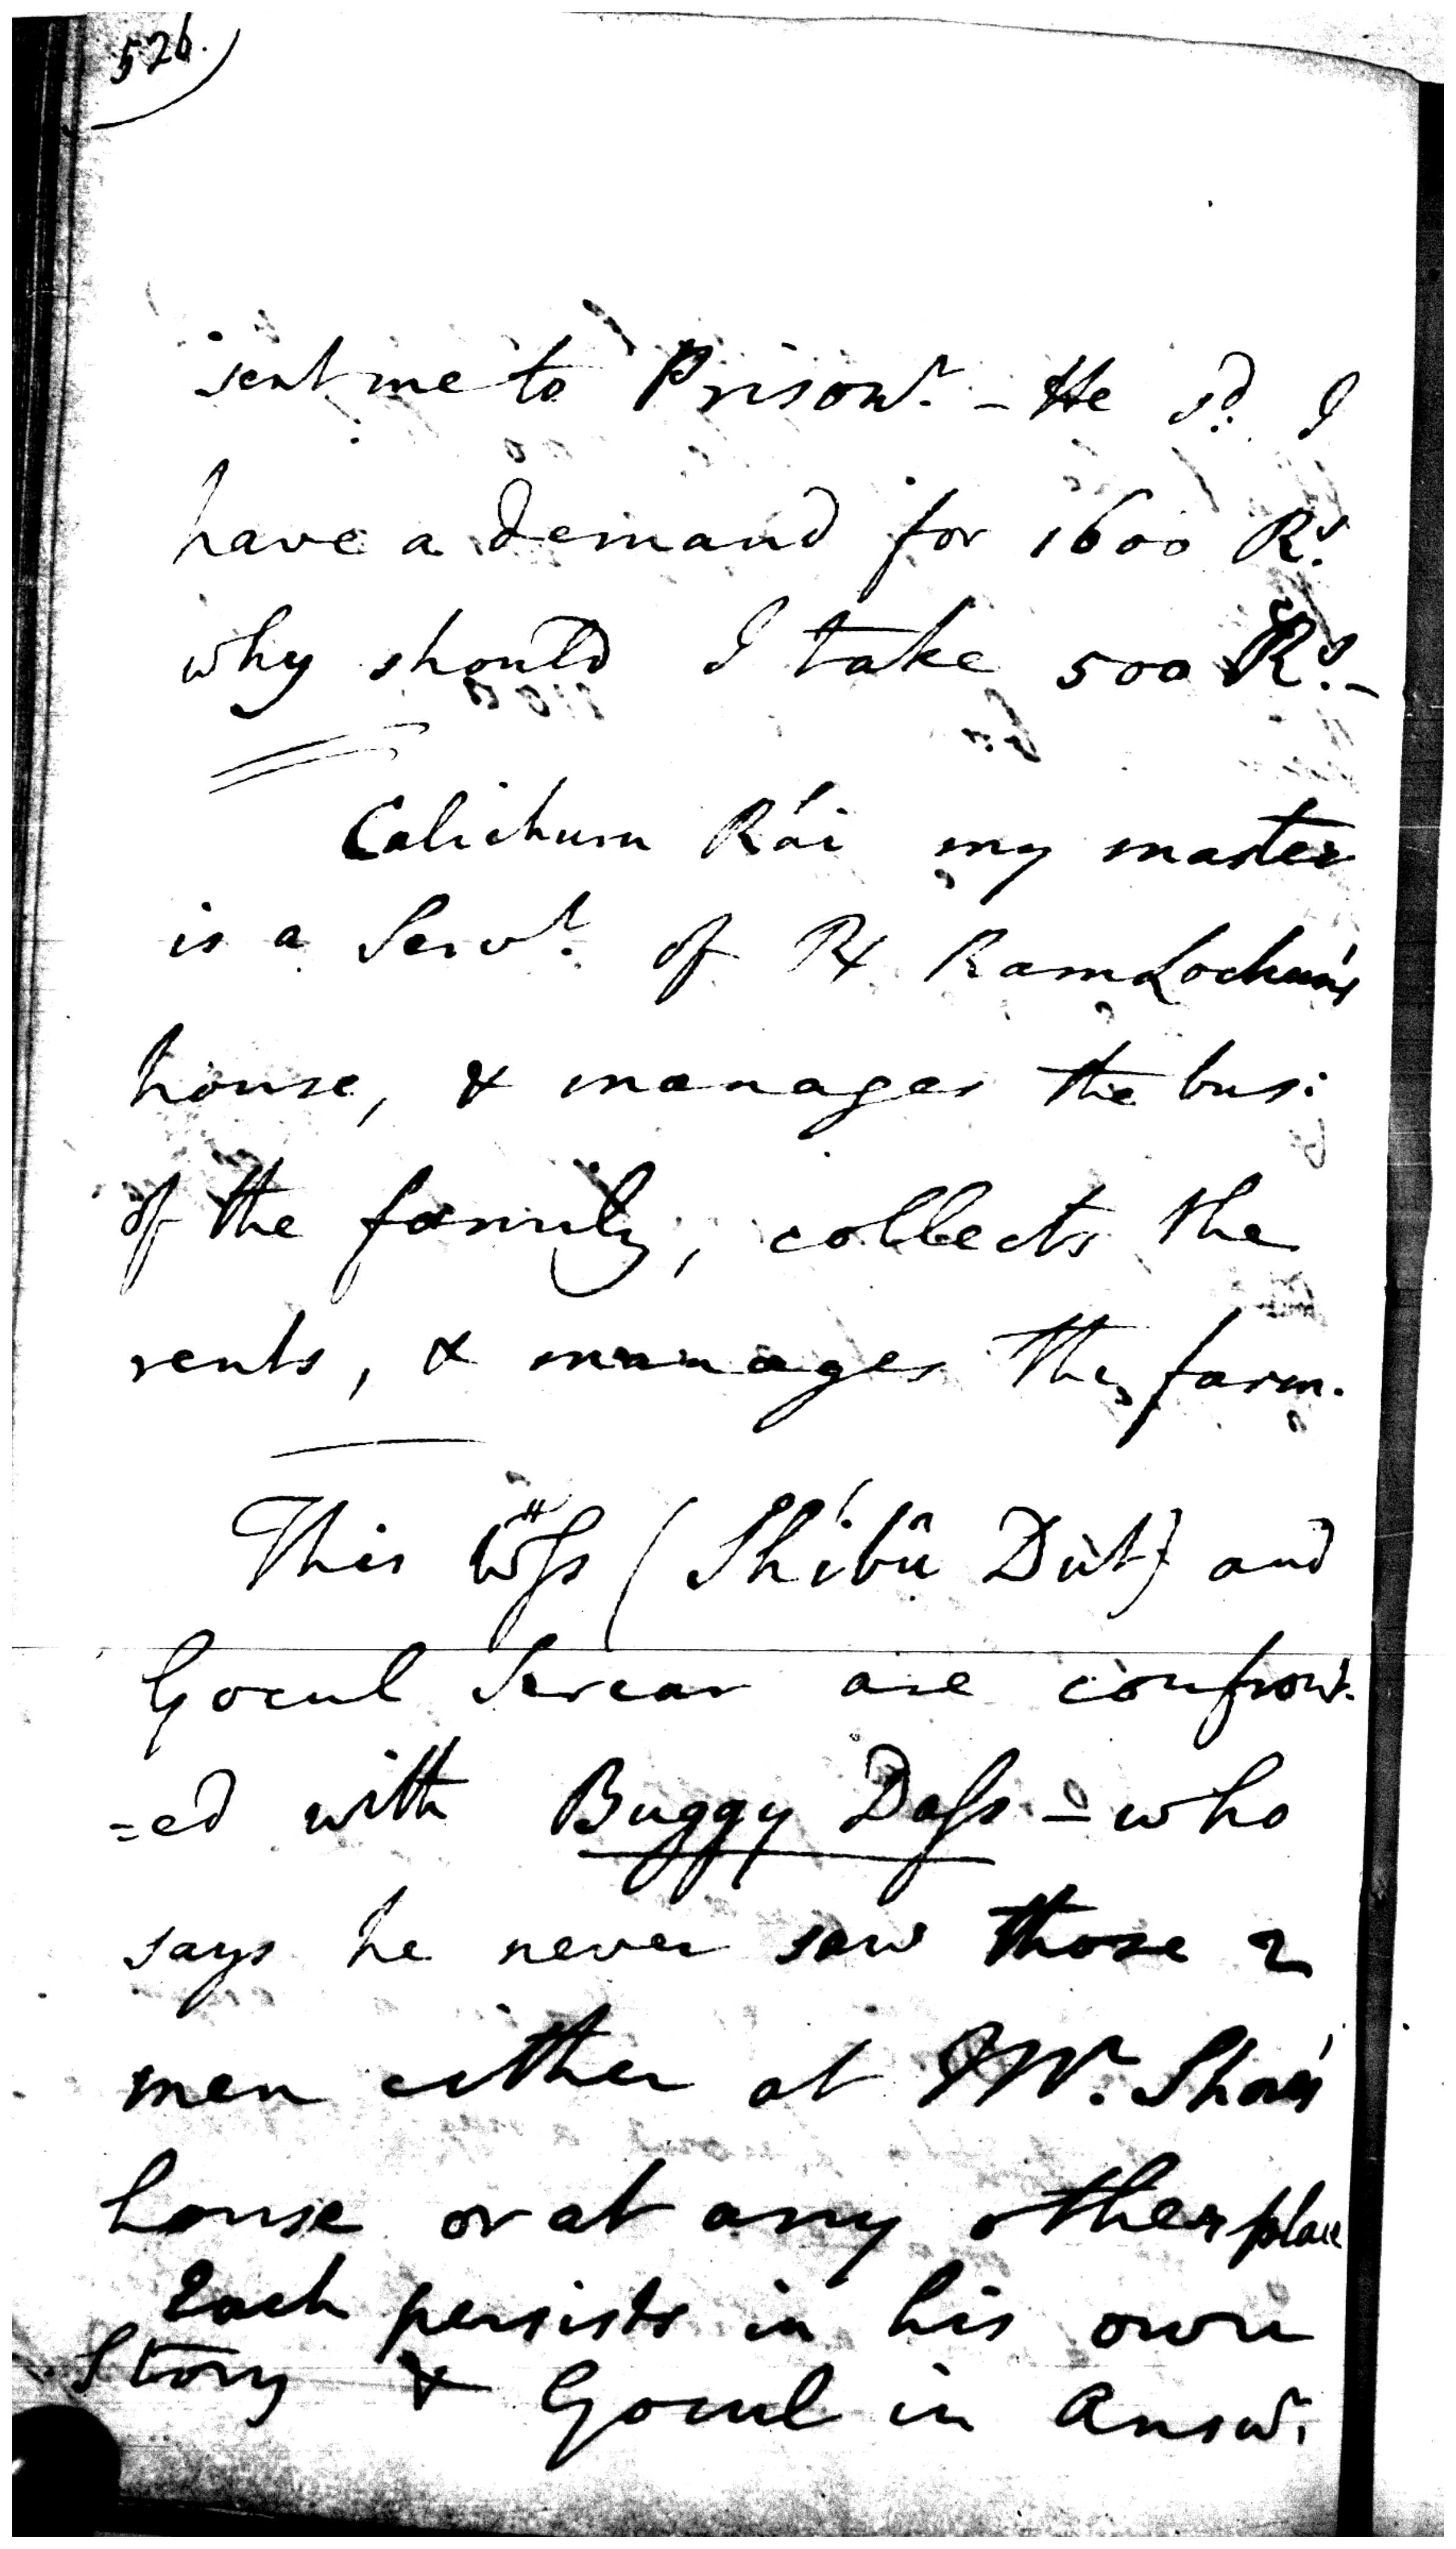 526.
sent me to Prisonr. - He sd. I
have a demand for 1600 Rs.
why should I take 500 Rs. -
Calichurn Rái my master
is a Servt. of Ramlochun's
house, & manages the busi
of the family, collects the
rents, & manages the farm.
This Wss (Shíbû Dut) and
Gocul Sircar are confron-
=ed with Buggy Dass - who
says he never saw those 2
men either at Mr. Shore's
house or at any other place
Each persists in his own
Story & Gocul in Answr.